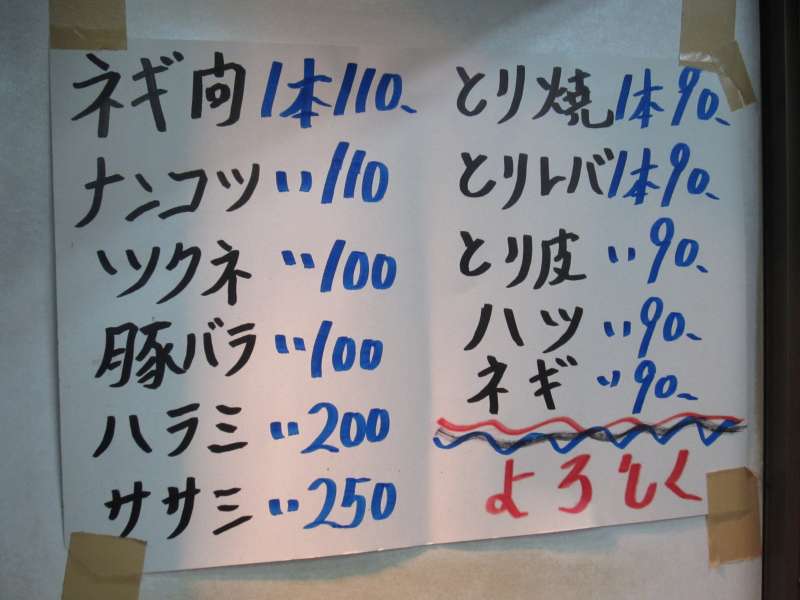 ネギ向 1本110、
ナンコツ 〃110
ツクネ 〃100
豚バラ 〃100
ハラミ 〃200
ササミ 〃250
とり焼 1本90、
とりレバ 1本90、
とり皮 〃90、
ハツ 〃90、
ネギ 〃90、
よろしく